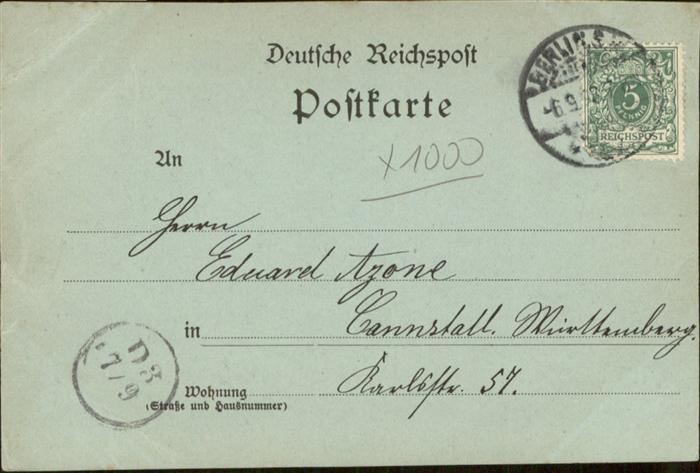 Deutsche Reichspost
Postkarte
BERLIN S
6.9.
5
PFENNIG
REICHSPOST
An
x1000
Herrn
Eduard Azone
in Cannstatt. Württemberg.
Wohnung Karlsstr. 57.
(Straße und Hausnummer)
D3
7/9